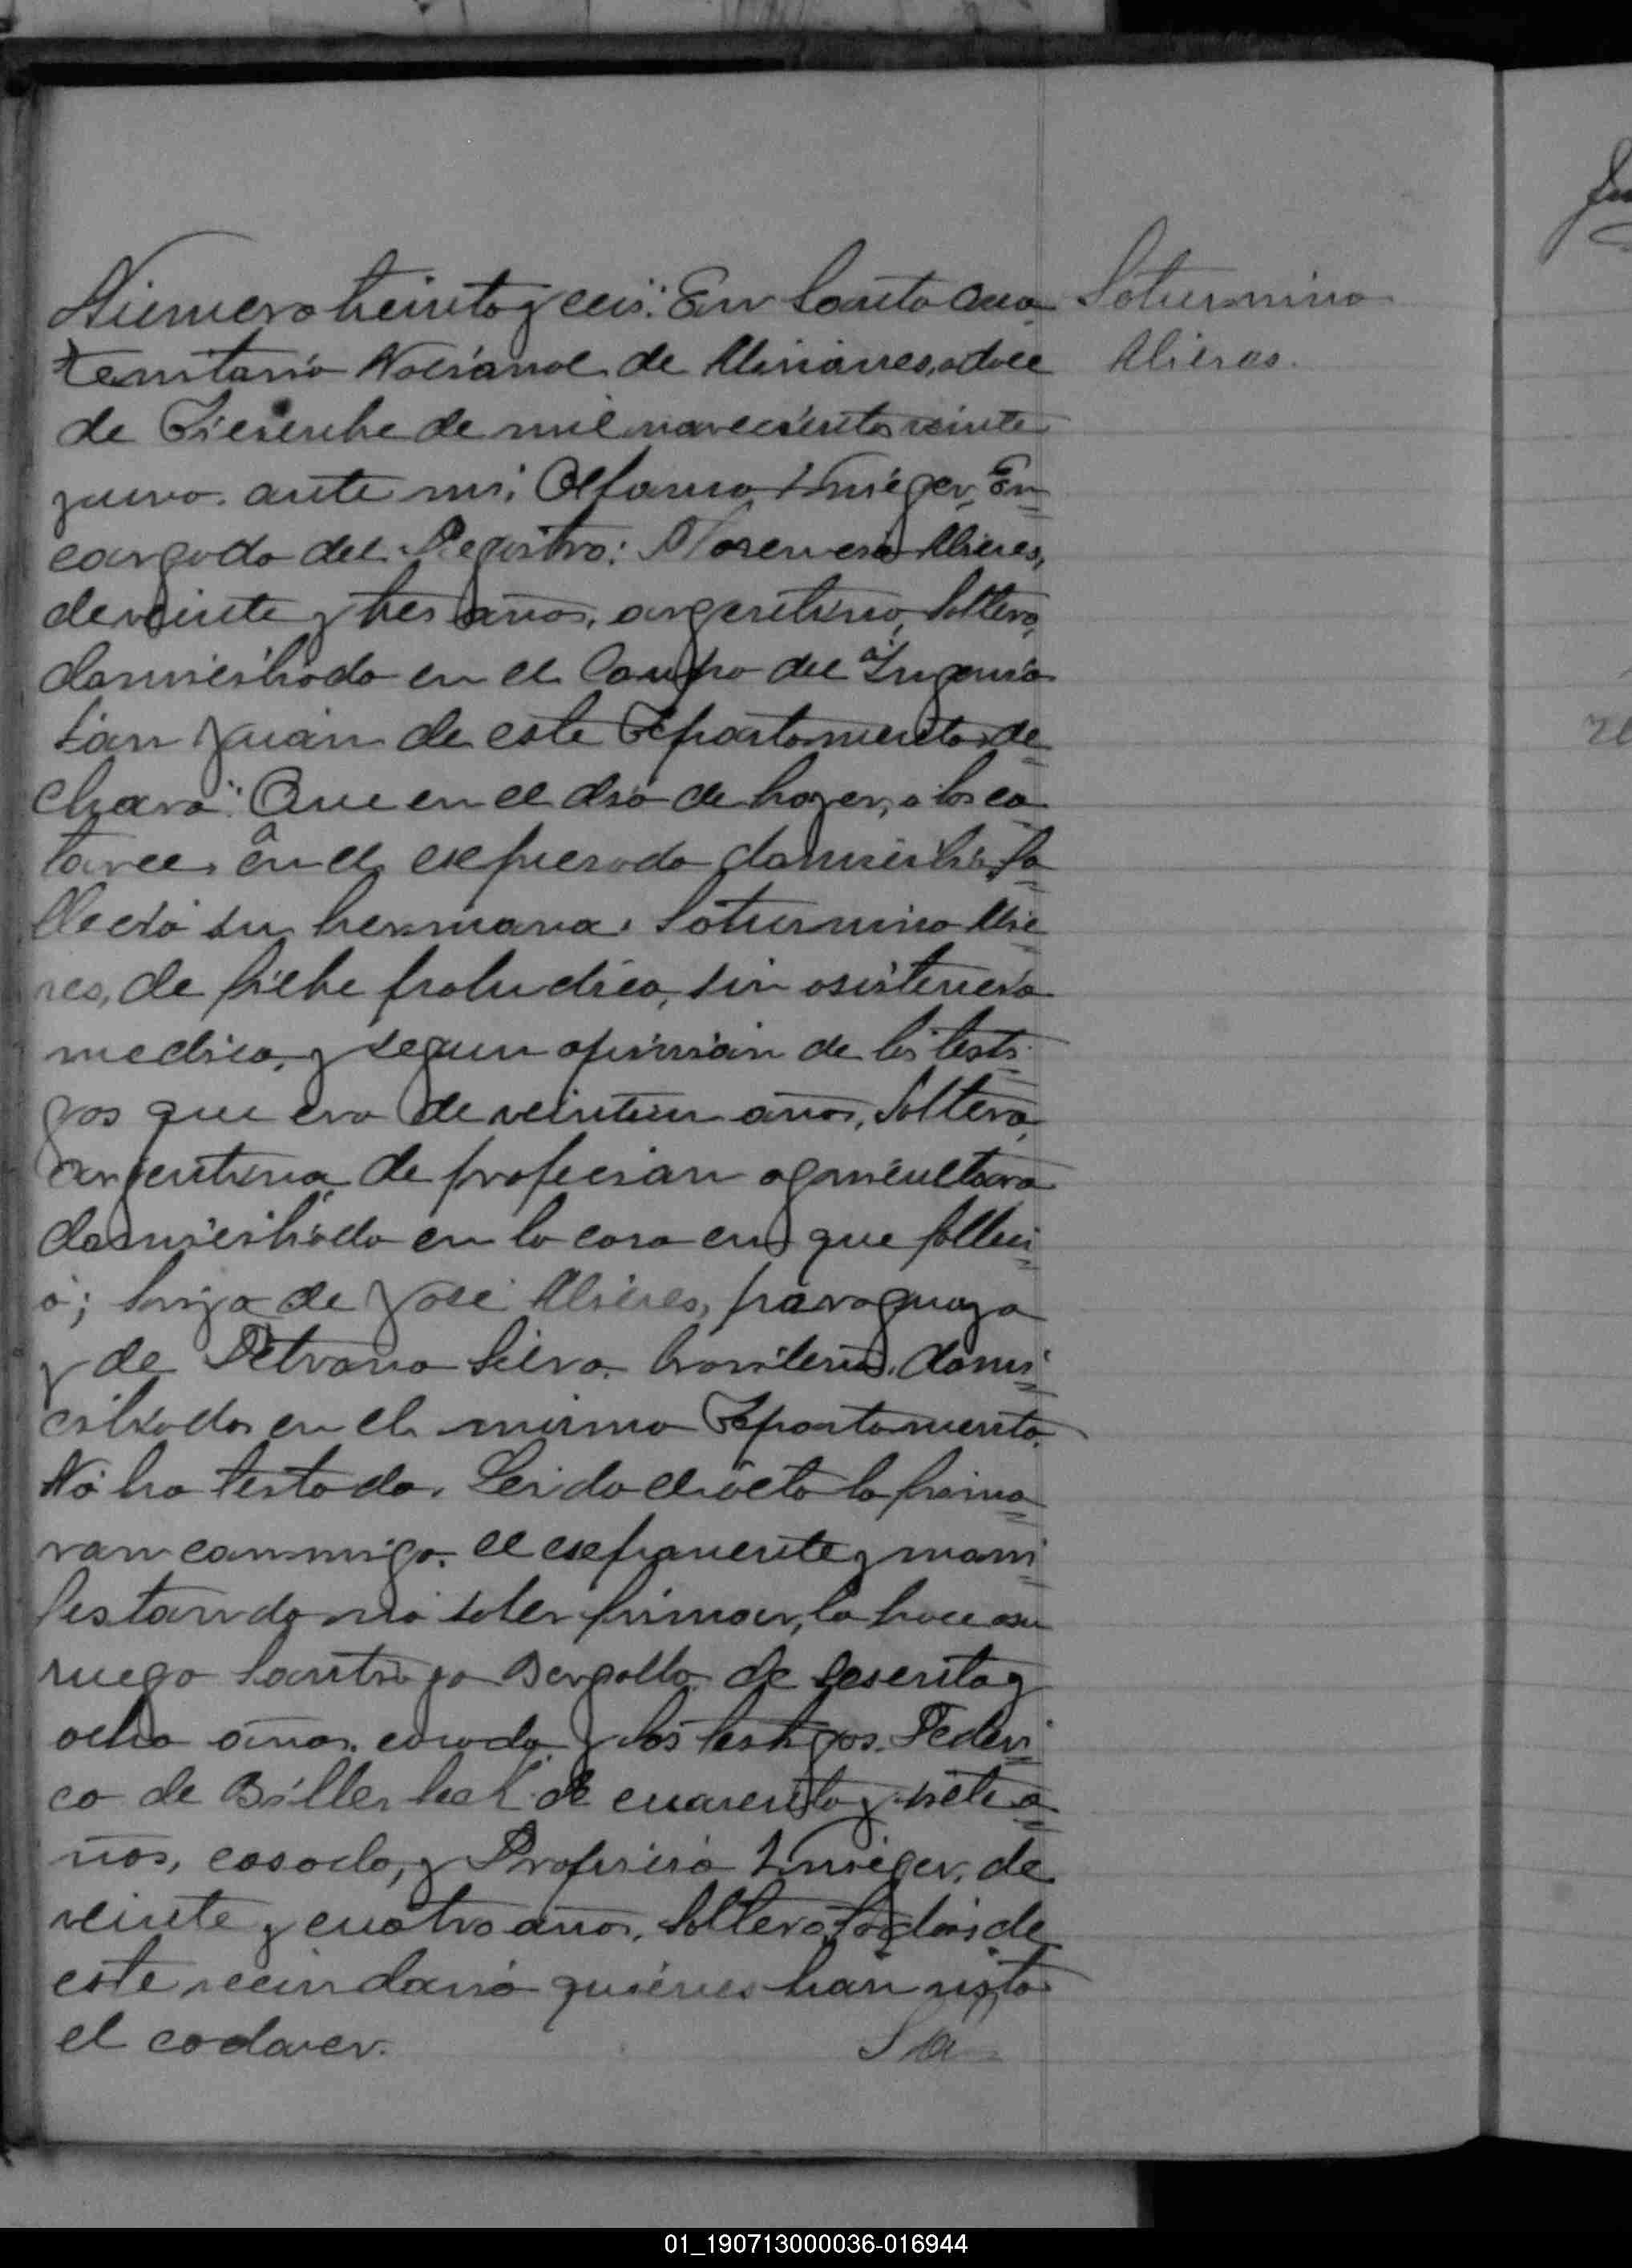 Numero treinta y seis: En Santa Ana
Saturnina
territorio Nacional de Misiones, a doce
Mieres.
de Diciembre de mil novecientos veinte
y uno. ante mi, Alfonso Kruger, En
cargado del Registro: Florencio Mieres,
de veinte y tres años, argentino, soltero,
domiciliado en el Campo del Ingenio
San Juan de este Departamento de
claró: Que en el dia de hoy, a las ca
torce, en el expresado domicilio fa
lleció su hermana Saturnina Mie
res, de fiebre paludica, sin asistencia
medica, y segun opinión de los testi
gos que era de veintiun años, soltera,
argentina de profecion agricultora
domiciliada en la casa en que falleci
ó; hija de José Mieres, paraguayo
y de Petrona Silva brasilera, domi
ciliados en el mismo Departamento.
No ha testado. Leida el acta la firma
ron conmigo. el exponente y mani
festando no saber firmar, lo hace a su
ruego Santiago Bergallo de sesenta y
ocho años, casado y los testigos Federi
co de Billerbek de cuarenta y siete a
ños, casado, y Proficio Kruger, de
veinte y cuatro años, soltero, todos de
este vecindario quienes han visto
el cadaver.
01_190713000036-016944